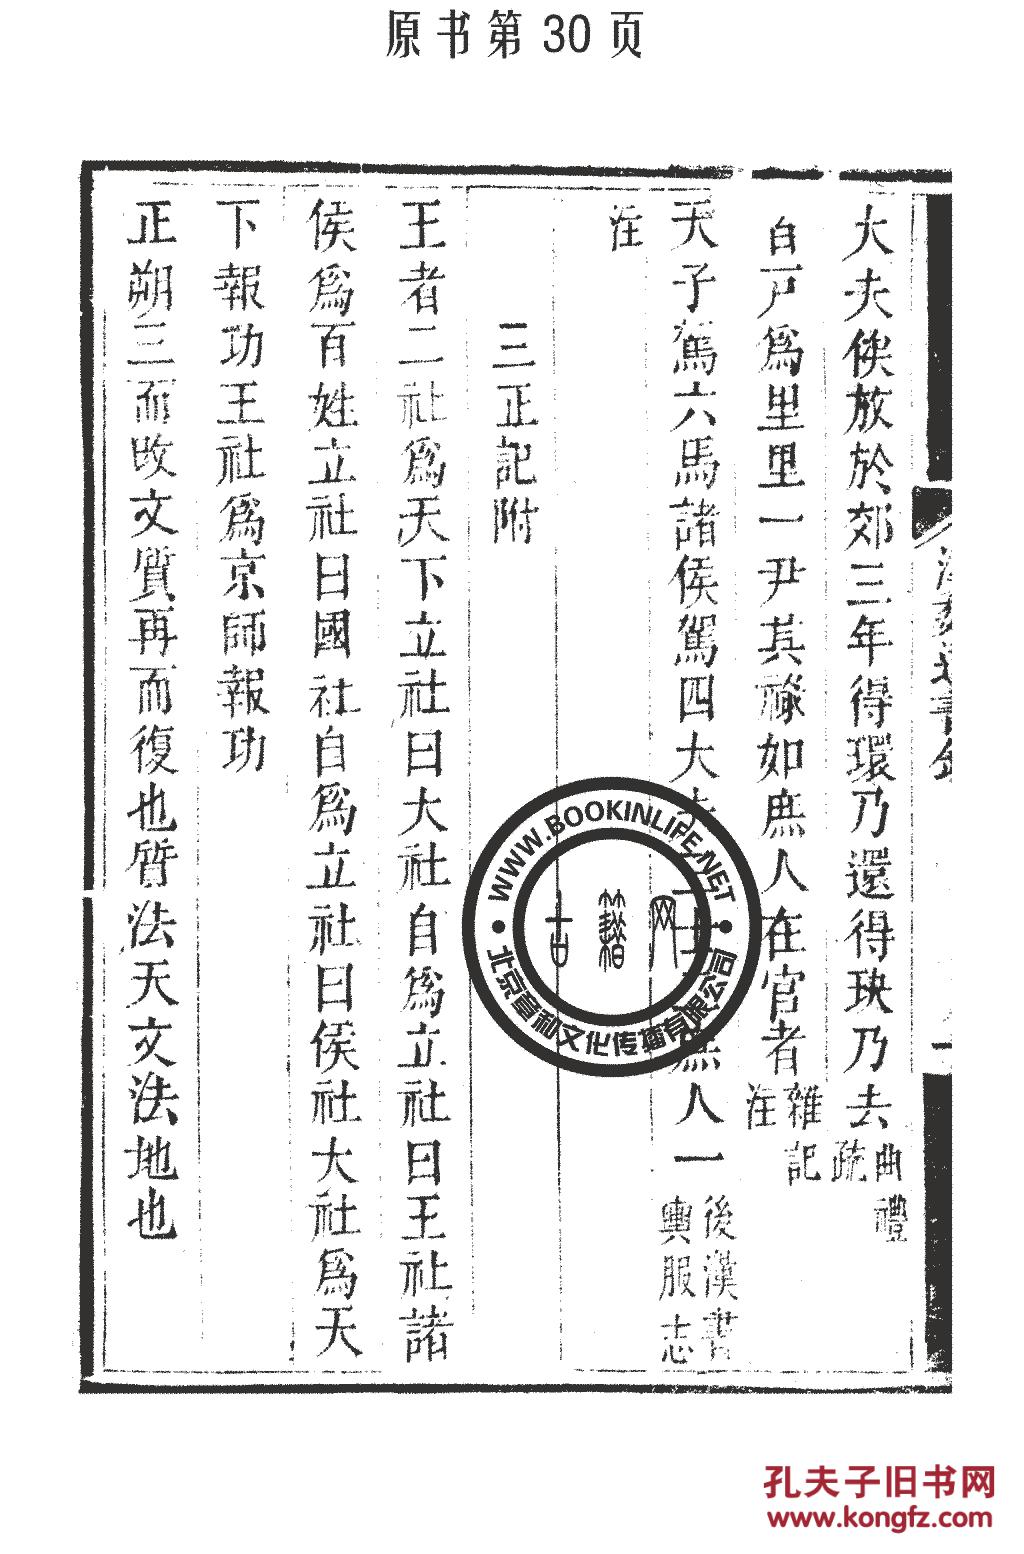 原书第30页
大夫俟放於郊三年得環乃還得玦乃去曲禮疏
百戸爲里里一尹其祿如庶人在官者雜記注
天子駕六馬諸侯駕四大夫三士二庶人一後漢書輿服志
注
三正記附
王者二社爲天下立社曰大社自爲立社曰王社諸
侯爲百姓立社曰國社自爲立社曰侯社大社爲天
下報功王社爲京師報功
正朔三而改文質再而復也質法天文法地也
漢魏遺書鈔
WWW.BOOKINLIFE.NET
古籍网
北京章和文化传播有限公司
孔夫子旧书网
www.kongfz.com